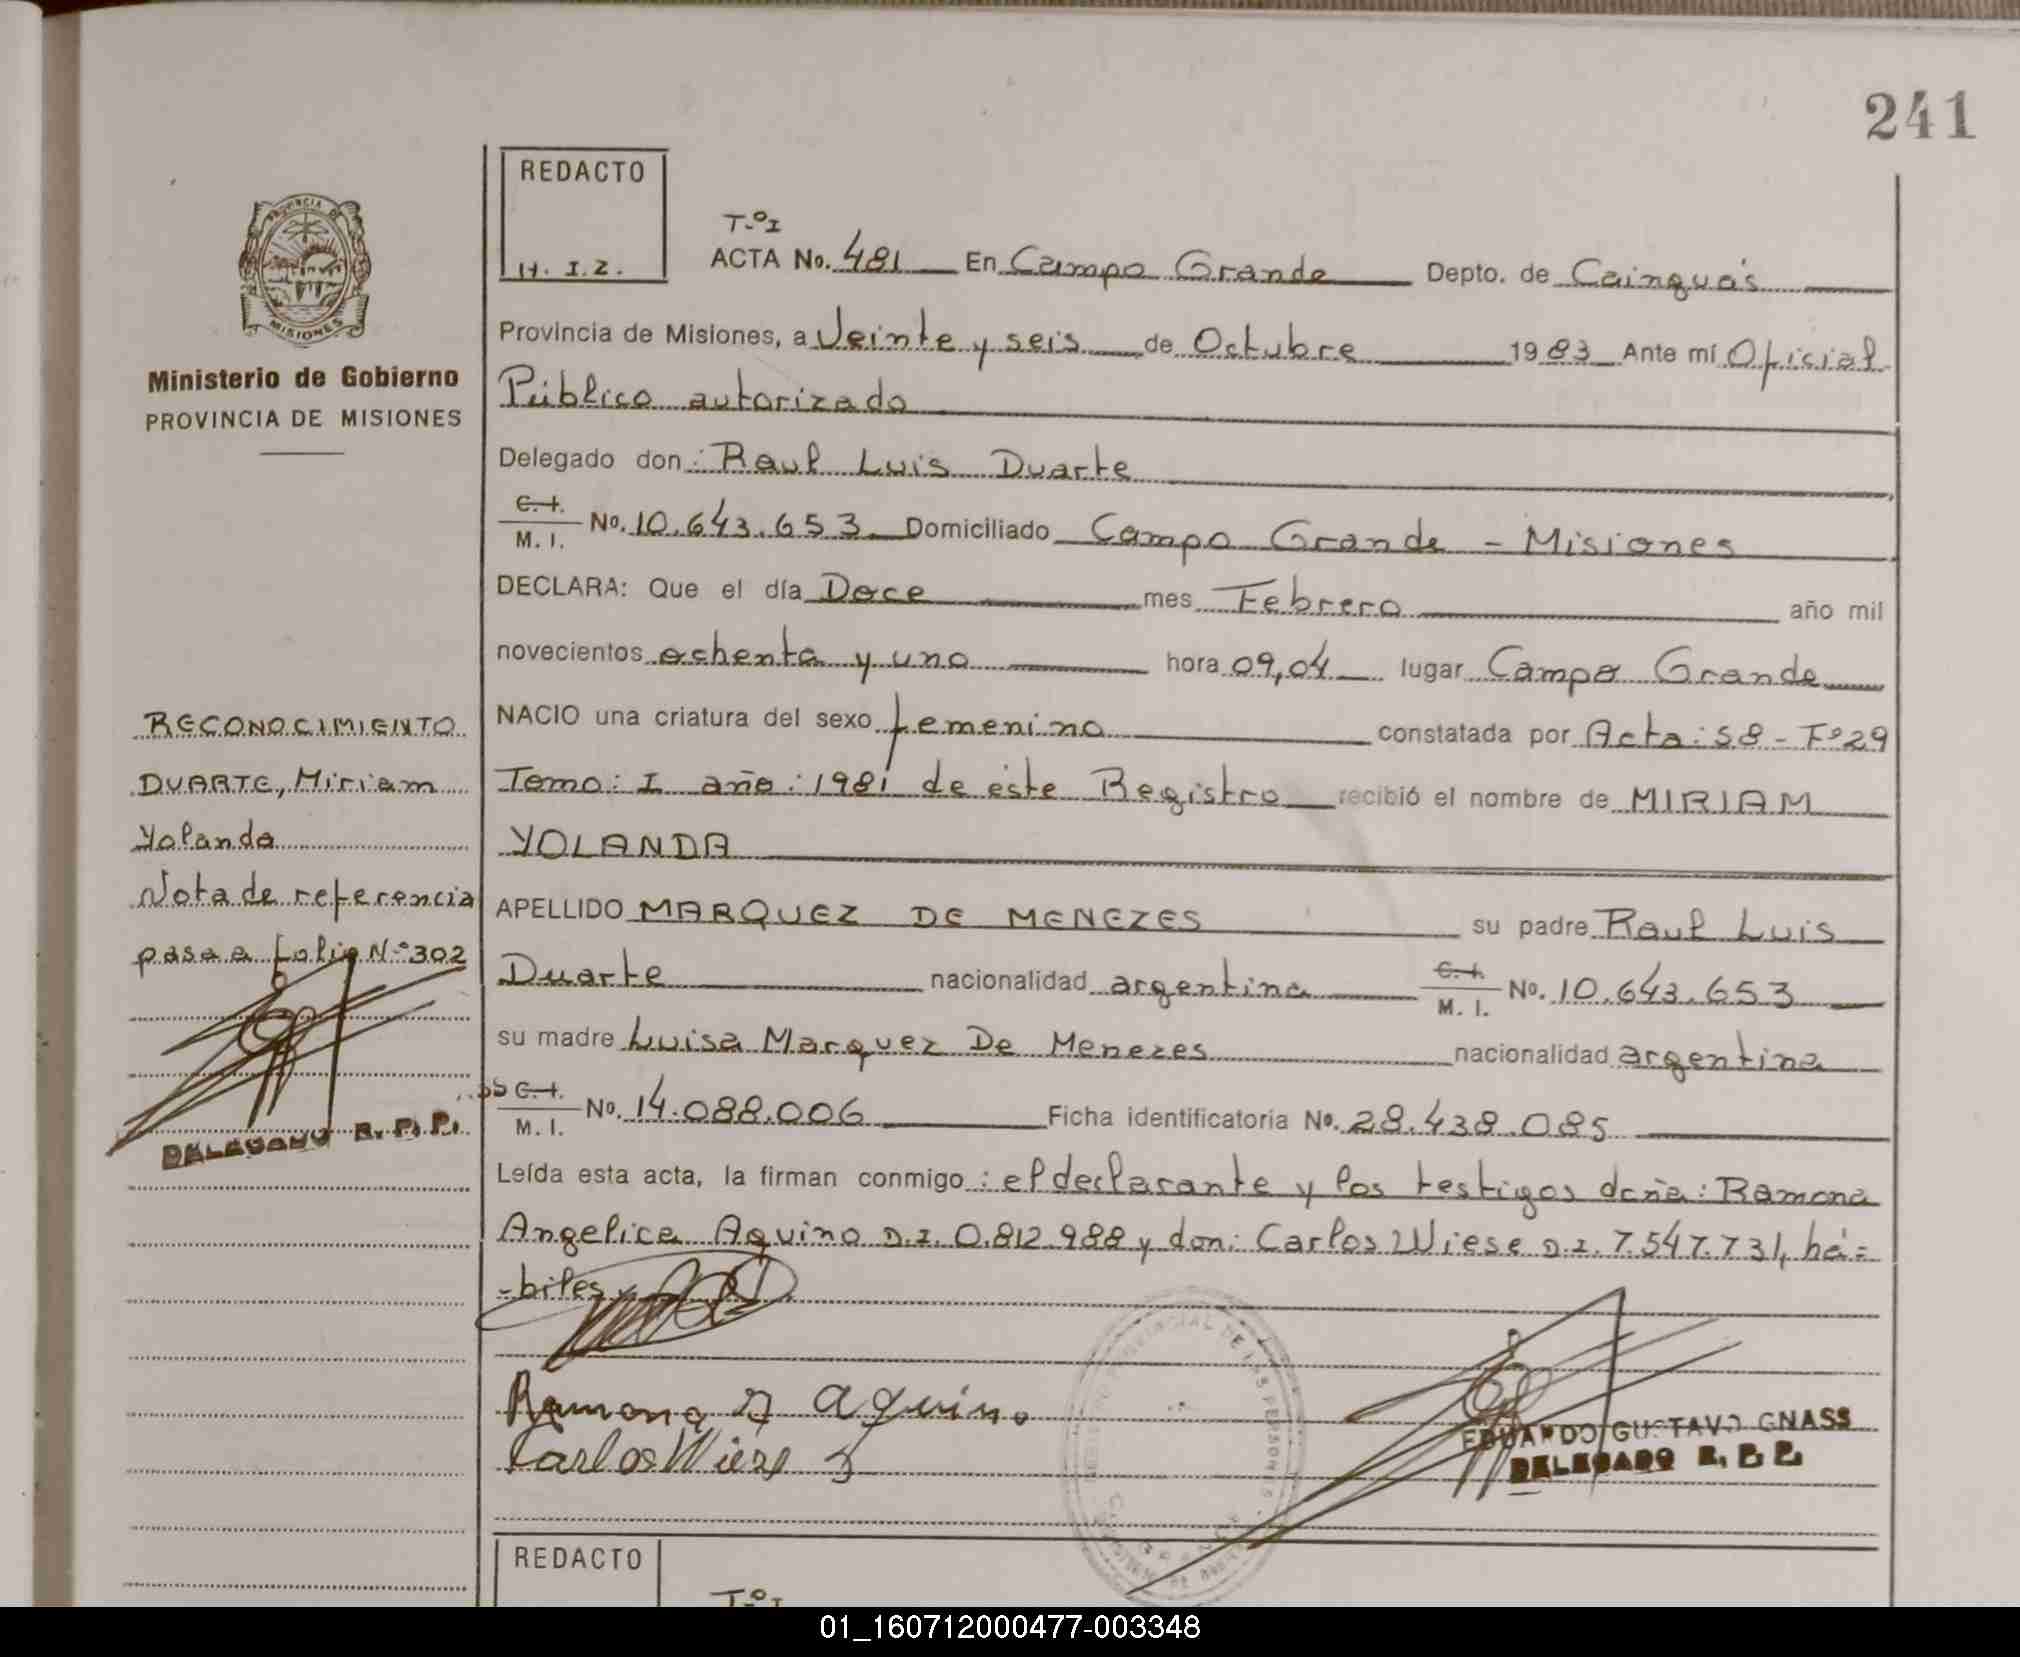 241
REDACTO
H. I. Z.
T-º I
ACTA No. 481 En Campo Grande Depto. de Cainguás
Provincia de Misiones, a Veinte y seis de Octubre 1983 Ante mí Oficial
Público autorizado
Delegado don: Raul Luis Duarte
C. I.
M. I. No. 10.643.653 Domiciliado Campo Grande - Misiones
DECLARA: Que el día Doce mes Febrero año mil
novecientos ochenta y uno hora 09,04 lugar Campo Grande
NACIO una criatura del sexo femenino constatada por Acta: 58 - Fº 29
Tomo: I año: 1981 de éste Registro recibió el nombre de MIRIAM
YOLANDA
APELLIDO MARQUEZ DE MENEZES su padre Raul Luis
Duarte nacionalidad argentina C. I. M. I. No. 10.643.653
su madre Luisa Marquez De Menezes nacionalidad argentina
C. I.
M. I. No. 14.088.006 Ficha identificatoria No. 28.438.085
Leída esta acta, la firman conmigo : el declarante y los testigos doña: Ramona
Angelica Aquino D.I. 0.812.988 y don: Carlos Wiese D.I. 7.547.731, há=
-biles
Ramona A Aquino
Carlos Wiese
EDUARDO GUSTAVO GNASS
DELEGADO R. P. P.
PROVINCIA DE
MISIONES
Ministerio de Gobierno
PROVINCIA DE MISIONES
RECONOCIMIENTO
DUARTE, Miriam
Yolanda
Nota de referencia
pasa a folio N-º 302
DELEGADO R. P. P.
REDACTO
T-º I
01_160712000477-003348